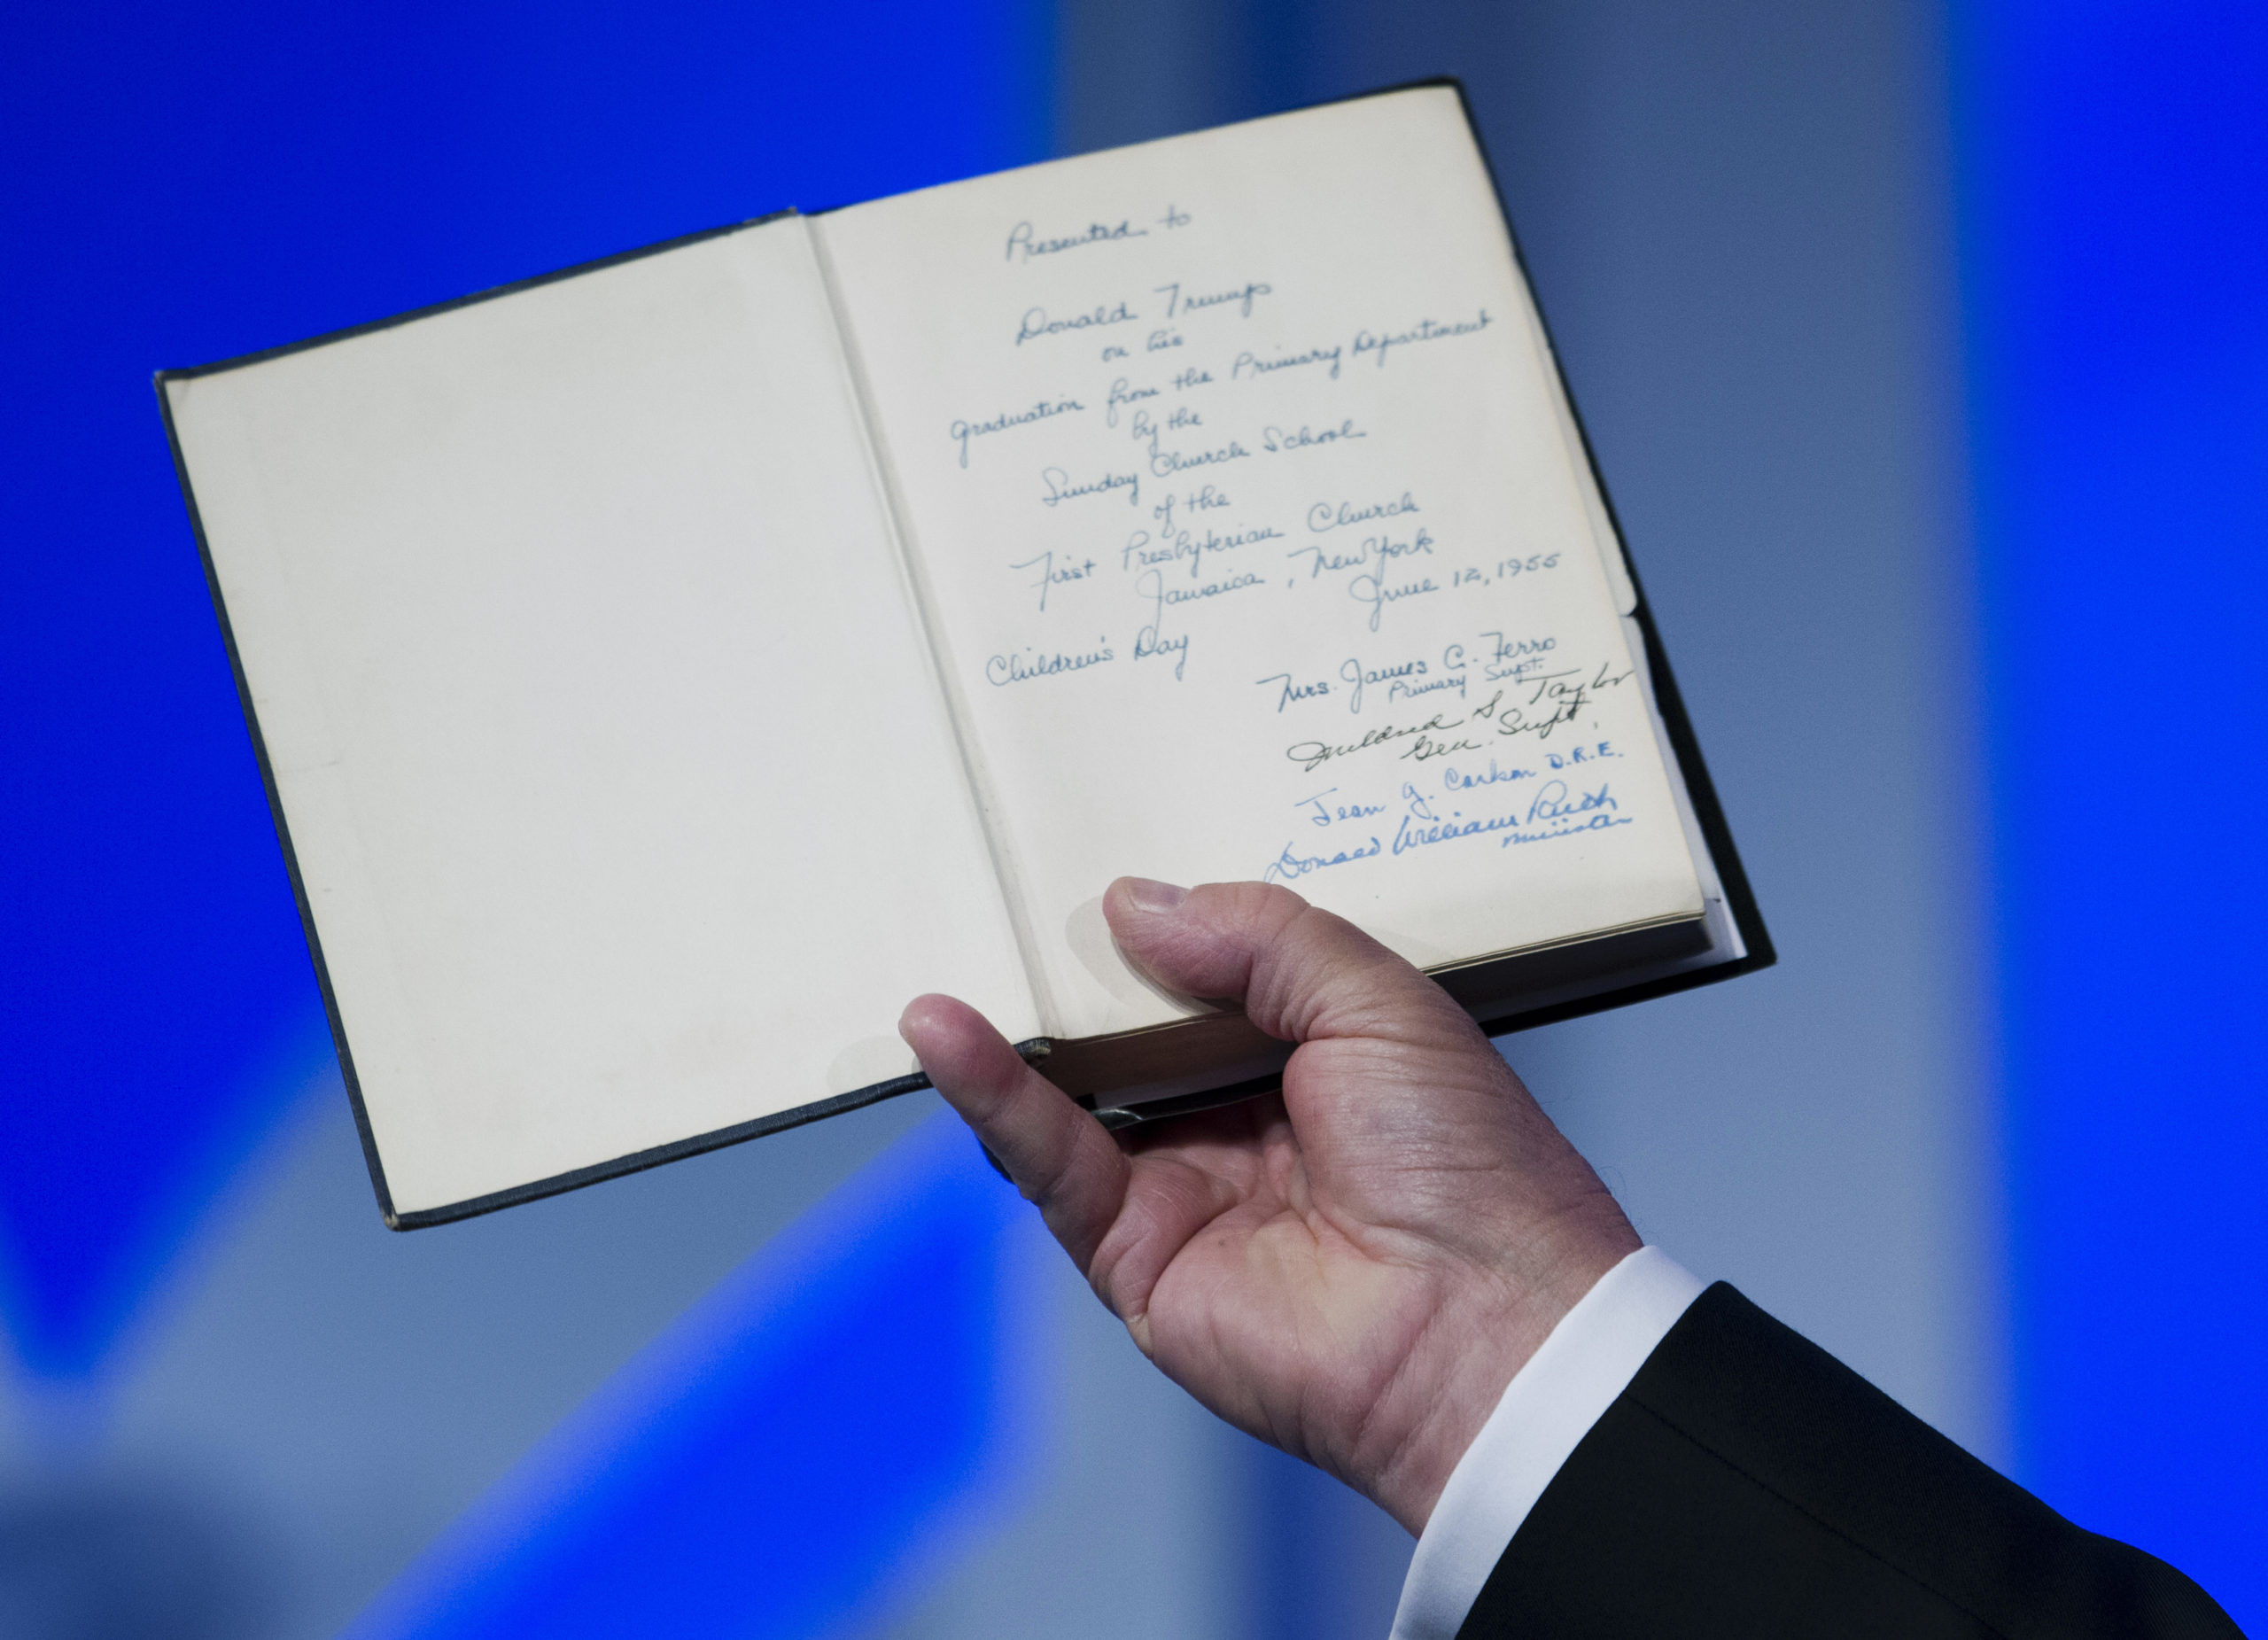 Presented to
Donald Trump
on his
graduation from the Primary Department
by the
Sunday Church School
of the
First Presbyterian Church
Jamaica, New York
June 12, 1955
Children's Day
Mrs. James C. Ferro
Primary Supt.
Mildred S. Taylor
Gen. Supt.
Jean J. Carlson D.R.E.
Donald William Ruth
Minister